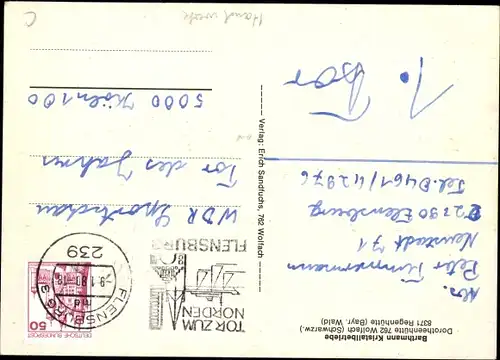 Barthmann Kristallbetriebe
Dorotheenhütte 762 Wolfach (Schwarzw.),
8371 Regenhütte (Bayr. Wald)
Abs.
Peter Timmermann
Neustadt 71
D 2390 Flensburg
Tel. 0461/42976
1. Tor
Verlag: Erich Sandfuchs, 762 Wolfach
TOR ZUM
NORDEN
FLENSBURG
FLENSBURG
-9.1.80-18
239
50
DEUTSCHE BUNDESPOST
WDR Sportschau
Tor des Jahres
5000 Köln 100
C